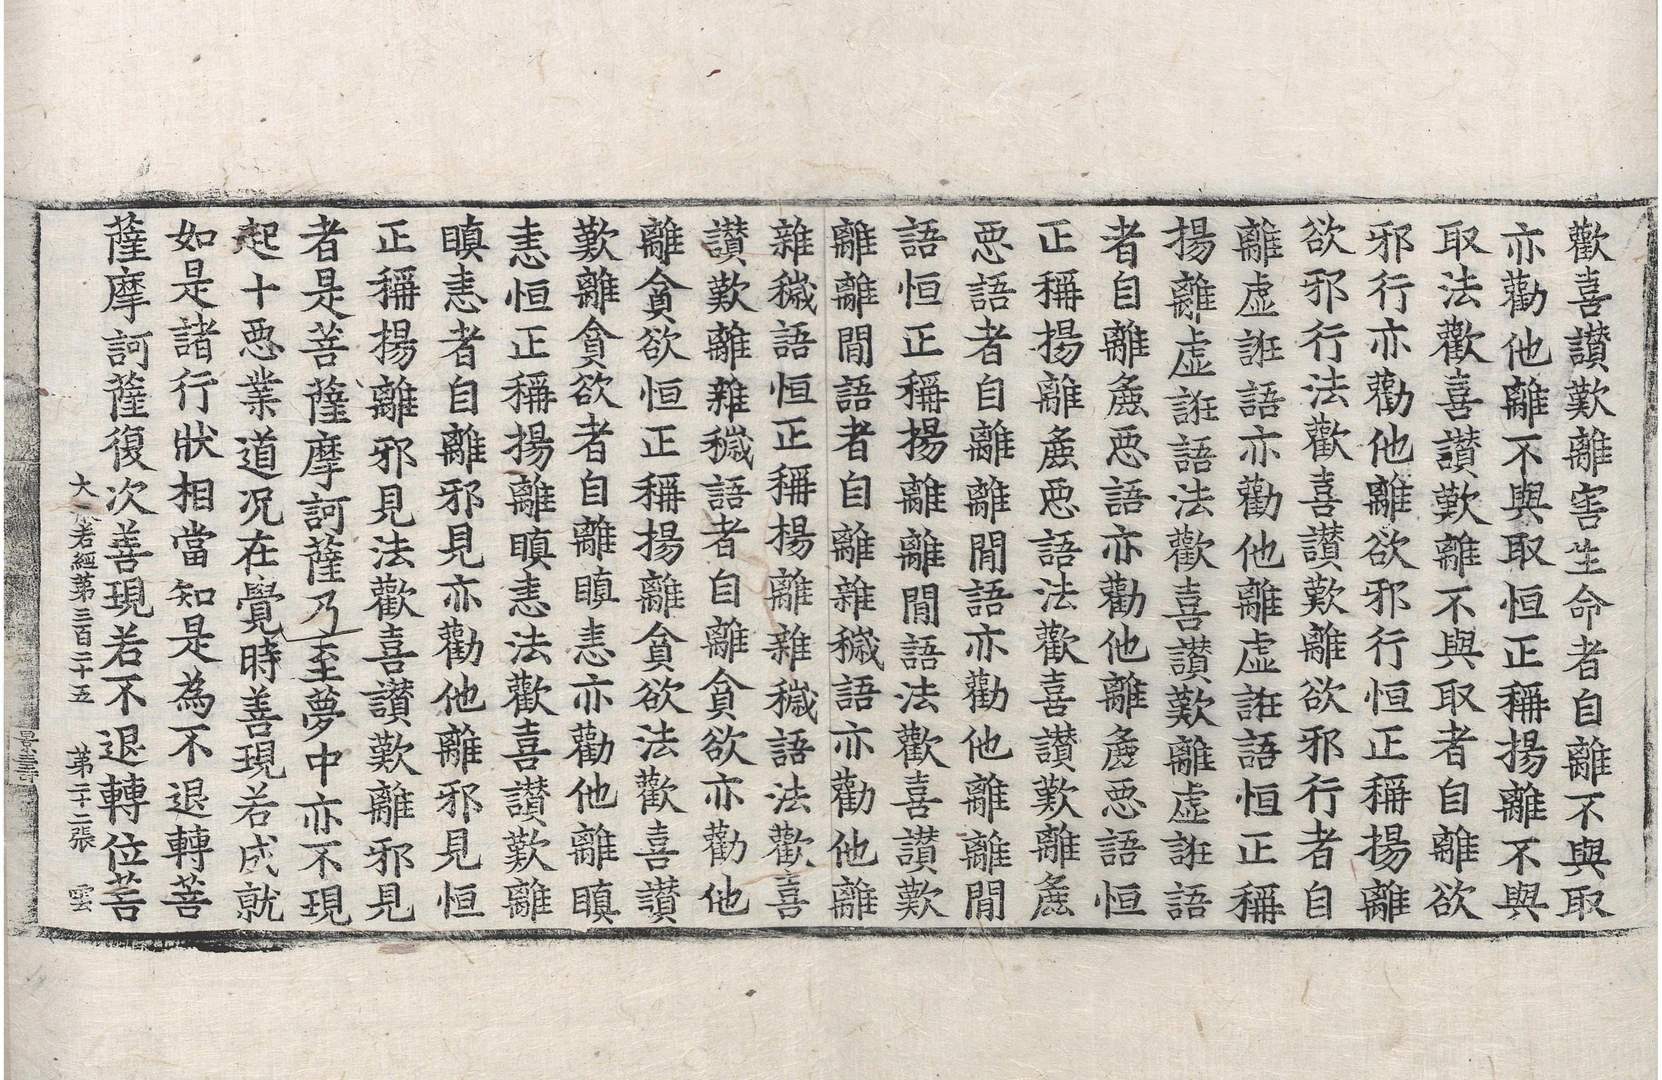 歡喜讃歎離害生命者自離不與取
亦勸他離不與取恒正稱揚離不與
取法歡喜讃歎離不與取者自離欲
邪行亦勸他離欲邪行恒正稱揚離
欲邪行法歡喜讃歎離欲邪行者自
離虛誑語亦勸他離虛誑語恒正稱
揚離虛誑語法歡喜讃歎離虛誑語
者自離麁惡語亦勸他離麁惡語恒
正稱揚離麁惡語法歡喜讃歎離麁
惡語者自離離間語亦勸他離離間
語恒正稱揚離離間語法歡喜讃歎
離離間語者自離雜穢語亦勸他離
雜穢語恒正稱揚離雜穢語法歡喜
讃歎離雜穢語者自離貪欲亦勸他
離貪欲恒正稱揚離貪欲法歡喜讃
歎離貪欲者自離瞋恚亦勸他離瞋
恚恒正稱揚離瞋恚法歡喜讃歎離
瞋恚者自離邪見亦勸他離邪見恒
正稱揚離邪見法歡喜讃歎離邪見
者是菩薩摩訶薩乃至夢中亦不現
起十惡業道況在覺時善現若成就
如是諸行狀相當知是為不退轉菩
薩摩訶薩復次善現若不退轉位菩
大般若經第三百二十五 第二十二張 雲